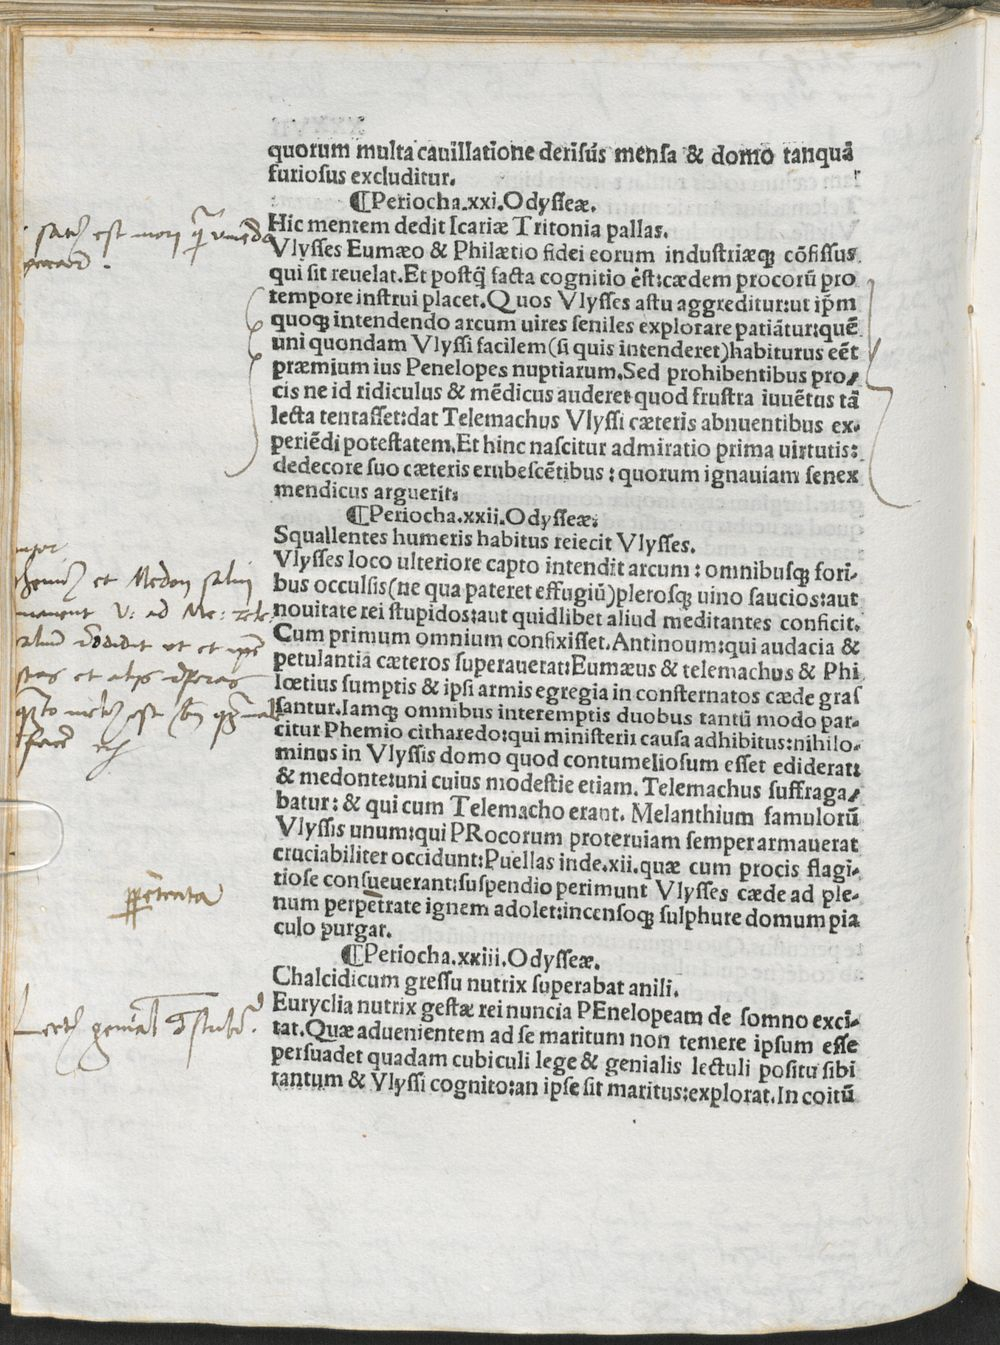 quorum multa cauillatione derisus mensa & domo tanquã
furiosus excluditur.
¶Periocha.xxi.Odysseæ.
Hic mentem dedit Icariæ Tritonia pallas.
Vlysses Eumæo & Philætio fidei eorum industriæq; cõfissus
qui sit reuelat.Et postq̃ facta cognitio est:cædem procorũ pro
tempore instrui placet.Quos Vlysses astu aggreditur:ut ip̃m
quoq; intendendo arcum uires seniles explorare patiãtur:quẽ
uni quondam Vlyssi facilem(si quis intenderet)habiturus eẽt
præmium ius Penelopes nuptiarum.Sed prohibentibus pro/
cis ne id ridiculus & mẽdicus auderet quod frustra iuuẽtus tã
lecta tentasset:dat Telemachus Vlyssi cæteris abnuentibus ex-
periẽdi potestatem.Et hinc nascitur admiratio prima uirtutis:
dedecore suo cæteris erubescẽtibus:quorum ignauiam senex
mendicus arguerit:
¶Periocha.xxii.Odysseæ:
Squallentes humeris habitus reiecit Vlysses.
Vlysses loco ulteriore capto intendit arcum:omnibusq; fori-
bus occulsis(ne qua pateret effugiũ)plerosq; uino saucios:aut
nouitate rei stupidos:aut quidlibet aliud meditantes conficit.
Cum primum omnium confixisset.Antinoum:qui audacia &
petulantia cæteros superauerat:Eumæus & telemachus & Phi
lœtius sumptis & ipsi armis egregia in consternatos cæde graf
santur.Iamq; omnibus interemptis duobus tantũ modo par-
citur Phemio citharedo:qui ministerii causa adhibitus:nihilo-
minus in Vlyssis domo quod contumeliosum esset ediderat:
& medonte:uni cuius modestie etiam. Telemachus suffraga/
batur:& qui cum Telemacho erant. Melanthium famulorũ
Vlyssis unum:qui PRocorum proteruiam semper armauerat
cruciabiliter occidunt:Puellas inde.xii.quæ cum procis flagi-
tiose consueuerant:suspendio perimunt Vlysses cæde ad ple-
num perpetrate ignem adolet:incensoq; sulphure domum pia
culo purgat.
¶Periocha.xxiii.Odysseæ.
Chalcidicum gressu nutrix superabat anili.
Euryclia nutrix gestæ rei nuncia PEnelopeam de somno exci-
tat.Quæ aduenientem ad se maritum non temere ipsum esse
persuadet quadam cubiculi lege & genialis lectuli positu sibi
tantum & Vlyssi cognito:an ipse sit maritus:explorat.In coitũ
et Medon salui